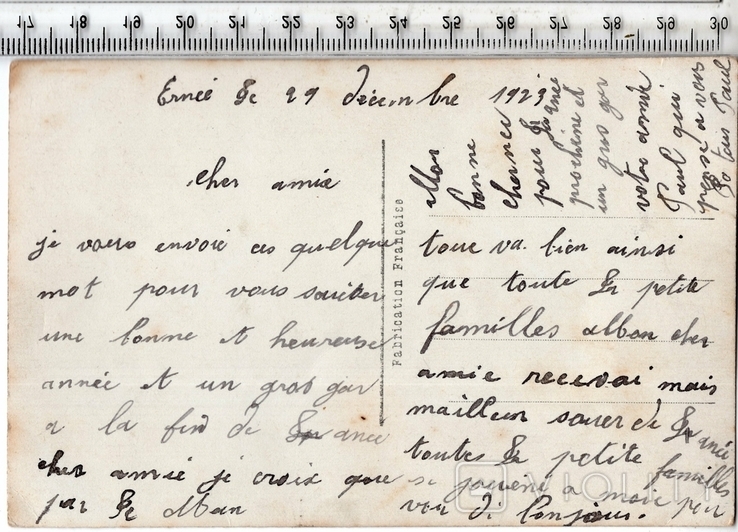 Ernée Le 29 décembre 1923
cher amie
je vous envoie ces quelque
mot pour vous souiter
une bonne et heureuse
année et un gros gar
a la fin de L ance
cher amie je croix que
par Le
toure va bien ainsi
que toute La petite
familles cher
amie recevai mais
mailleur souer de L anée
toutes La petite familles
si jouvent a moi peu
Bonjour.
bonne
cher
pour L anée
prochene et
un gros gar
votre amie
Paul qui
pense a vous
tous Paul
Fabrication Française
17 18 19 20 21 22 23 24 25 26 27 28 29 30
VIOLITY